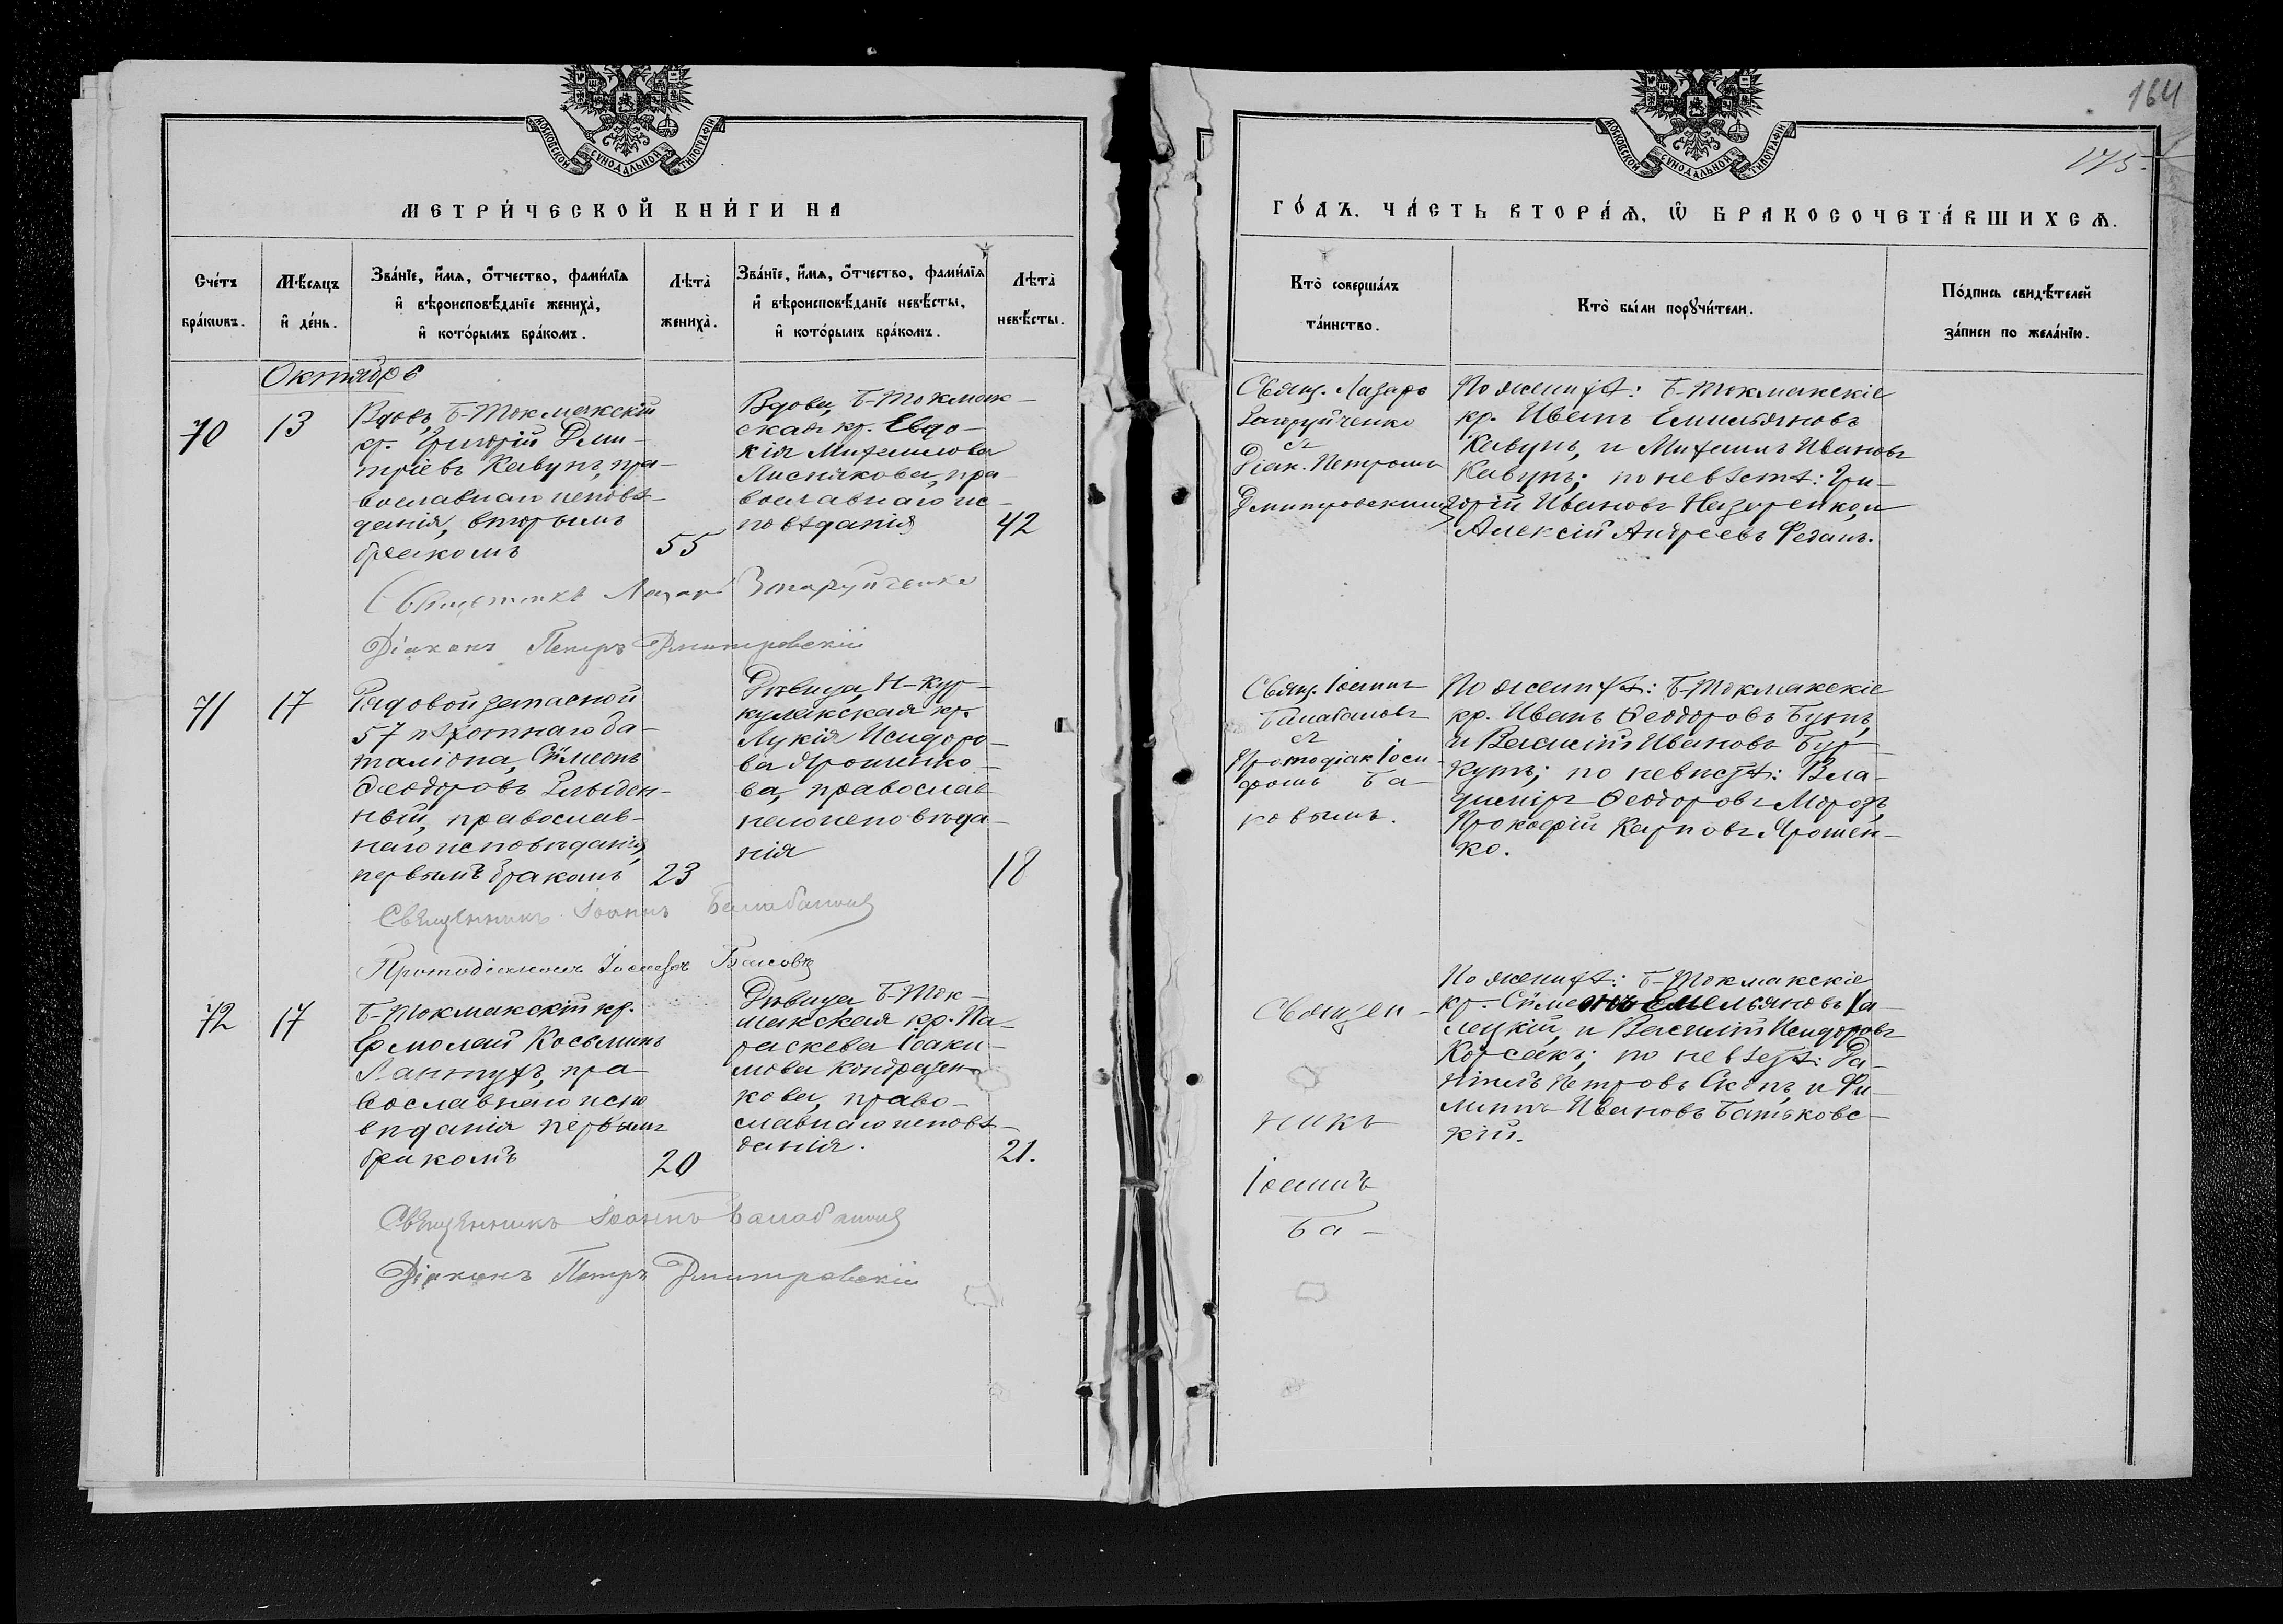 МОСКОВСКОЙ СѴНОДАЛЬНОЙ ТИПОГРАФІИ
МЕТРИ́ЧЕСКОЙ КНИ́ГИ НА
Сче́тъ бра́кωвъ.
Мѣ́сяцъ и҆ де́нь.
Зва́нїе, и҆́мя, ѻ҆́тчество, фами́лїя
и҆ вѣроисповѣ́данїе жениха̀,
и҆ кото́рымъ бра́комъ.
Лѣта̀ жениха̀.
Зва́нїе, и҆́мя, ѻ҆́тчество, фами́лїя
и҆ вѣроисповѣ́данїе невѣ́сты,
и҆ кото́рымъ бра́комъ.
Лѣта̀ невѣ́сты.
Октябрь
70
13
Вдовъ, Б-Токмакскій
кр. Григорій Дми-
тріевъ Кавунъ, пра-
вославнаго исповѣ-
данія, вторымъ
бракомъ
55
Вдова, Б-Токмак-
ская кр. Евдо-
кія Михаилова
Лиснякова, пра-
вославнаго ис-
повѣданія
42
Священникъ Лазарь Загоруйченко
Діаконъ Петръ Дмитровскій
71
17
Рядовой запасной
57 пѣхотнаго ба-
таліона, Сѵмеонъ
Ѳеодоровъ
ный, православ-
наго исповѣданія,
первымъ бракомъ
23
Дѣвица, Н-Кур-
кулакская кр.
Лукія Исидоро-
ва Ярошенко-
ва, православ
наго исповѣда-
нія
18
Священникъ Іоаннъ Балабановъ
Протодіаконъ Іосифъ Баковъ
72
17
Б-Токмакскій кр.
Ермолай Косьминъ
пра-
вославнаго испо
вѣданія первымъ
бракомъ
20
Дѣвица Б-Ток-
макская кр. Па-
раскева Іоаки-
мова Кондратен-
кова, право-
славнаго исповѣ-
данія.
21.
Священникъ Іоаннъ Балабановъ
Діаконъ Петръ Дмитровскій
164
175.
МОСКОВСКОЙ СѴНОДАЛЬНОЙ ТИПОГРАФІИ
ГО́ДЪ. ЧА́СТЬ ВТОРА́Ѧ, Ѽ БРАКОСОЧЕТА́ВШИХСѦ.
Кто̀ соверша́лъ та́инство.
Кто̀ бы́ли порꙋчи́тели.
По́дпись свидѣ́телей за́писи по жела́нїю.
Свящ. Лазарь
Загоруйченко
съ
Діак. Петромъ
Дмитровскимъ
По женихѣ: Б-Токмакскіе
кр. Иванъ Емильяновъ
Кавунъ, и Михаилъ Ивановъ
Кавунъ; по невѣстѣ: Гри-
горій Ивановъ Назаренко, и
Алексій Андреевъ
Свящ. Іоаннъ
Балабановъ
съ
Протодіак Іоси-
фомъ Ба-
ковымъ.
По женихѣ: Б-Токмакскіе
кр. Иванъ Ѳеодоровъ
и Василій Ивановъ Бур-
кутъ; по невѣстѣ: Вла-
диміръ Ѳеодоровъ Морозъ,
Прокофій Карповъ Ярошен-
ко.
Священ-
никъ
Іоаннъ
Ба-
По женихѣ: Б-Токмакскіе
кр. Сѵмеонъ Емельяновъ Га-
лецкій, и Василій Исидоровъ
Корсакъ; по невѣстѣ: Да-
ніилъ Петровъ и Фи-
липпъ Ивановъ Батьковс-
кій.